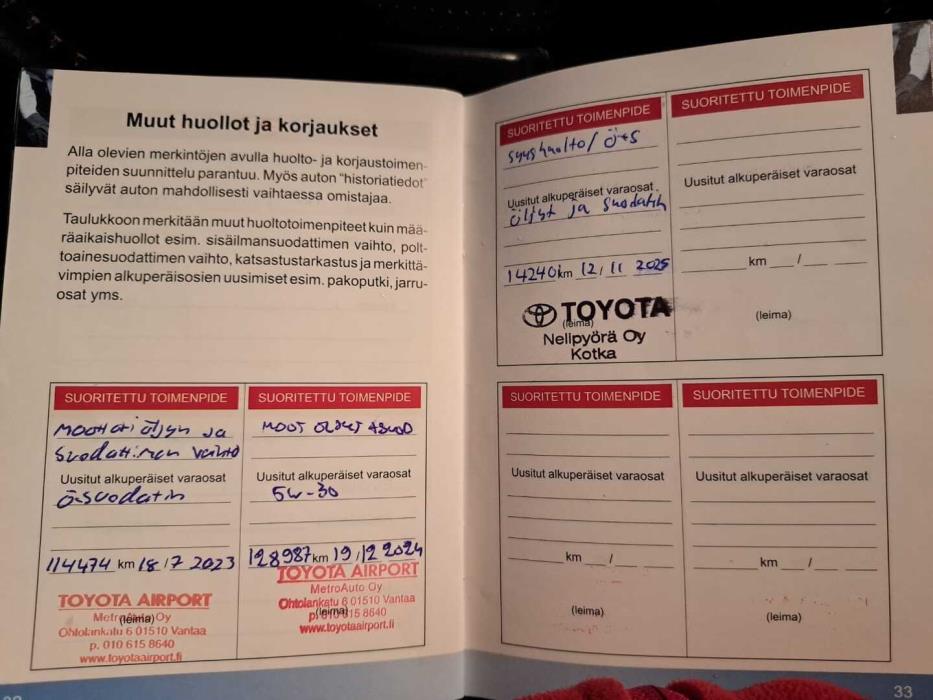 Muut huollot ja korjaukset
Alla olevien merkintöjen avulla huolto- ja korjaustoimen-
piteiden suunnittelu parantuu. Myös auton "historiatiedot"
säilyvät auton mahdollisesti vaihtaessa omistajaa.
Taulukkoon merkitään muut huoltotoimenpiteet kuin mää-
räaikaishuollot esim. sisäilmansuodattimen vaihto, polt-
toainesuodattimen vaihto, katsastustarkastus ja merkittä-
vimpien alkuperäisosien uusimiset esim. pakoputki, jarru-
osat yms.
SUORITETTU TOIMENPIDE
Moottoriöljyn ja
suodattimen vaihto
Uusitut alkuperäiset varaosat
ö-suodatin
114474 km 18 / 7 2023
TOYOTA AIRPORT
MetroAuto Oy
(leima)
Ohtolankatu 6 01510 Vantaa
p. 010 615 8640
www.toyotaairport.fi
SUORITETTU TOIMENPIDE
MOOT
Uusitut alkuperäiset varaosat
5W-30
128987 km 19 / 12 2024
TOYOTA AIRPORT
MetroAuto Oy
Ohtolankatu 6 01510 Vantaa
(leima)
p. 010 615 8640
www.toyotaairport.fi
SUORITETTU TOIMENPIDE
syyshuolto / ö+s
Uusitut alkuperäiset varaosat
Öljyt ja suodatin
14240 km 12 / 11 2025
TOYOTA
(leima)
Nelipyörä Oy
Kotka
SUORITETTU TOIMENPIDE
Uusitut alkuperäiset varaosat
km / 
(leima)
SUORITETTU TOIMENPIDE
Uusitut alkuperäiset varaosat
km /
(leima)
SUORITETTU TOIMENPIDE
Uusitut alkuperäiset varaosat
km /
(leima)
33